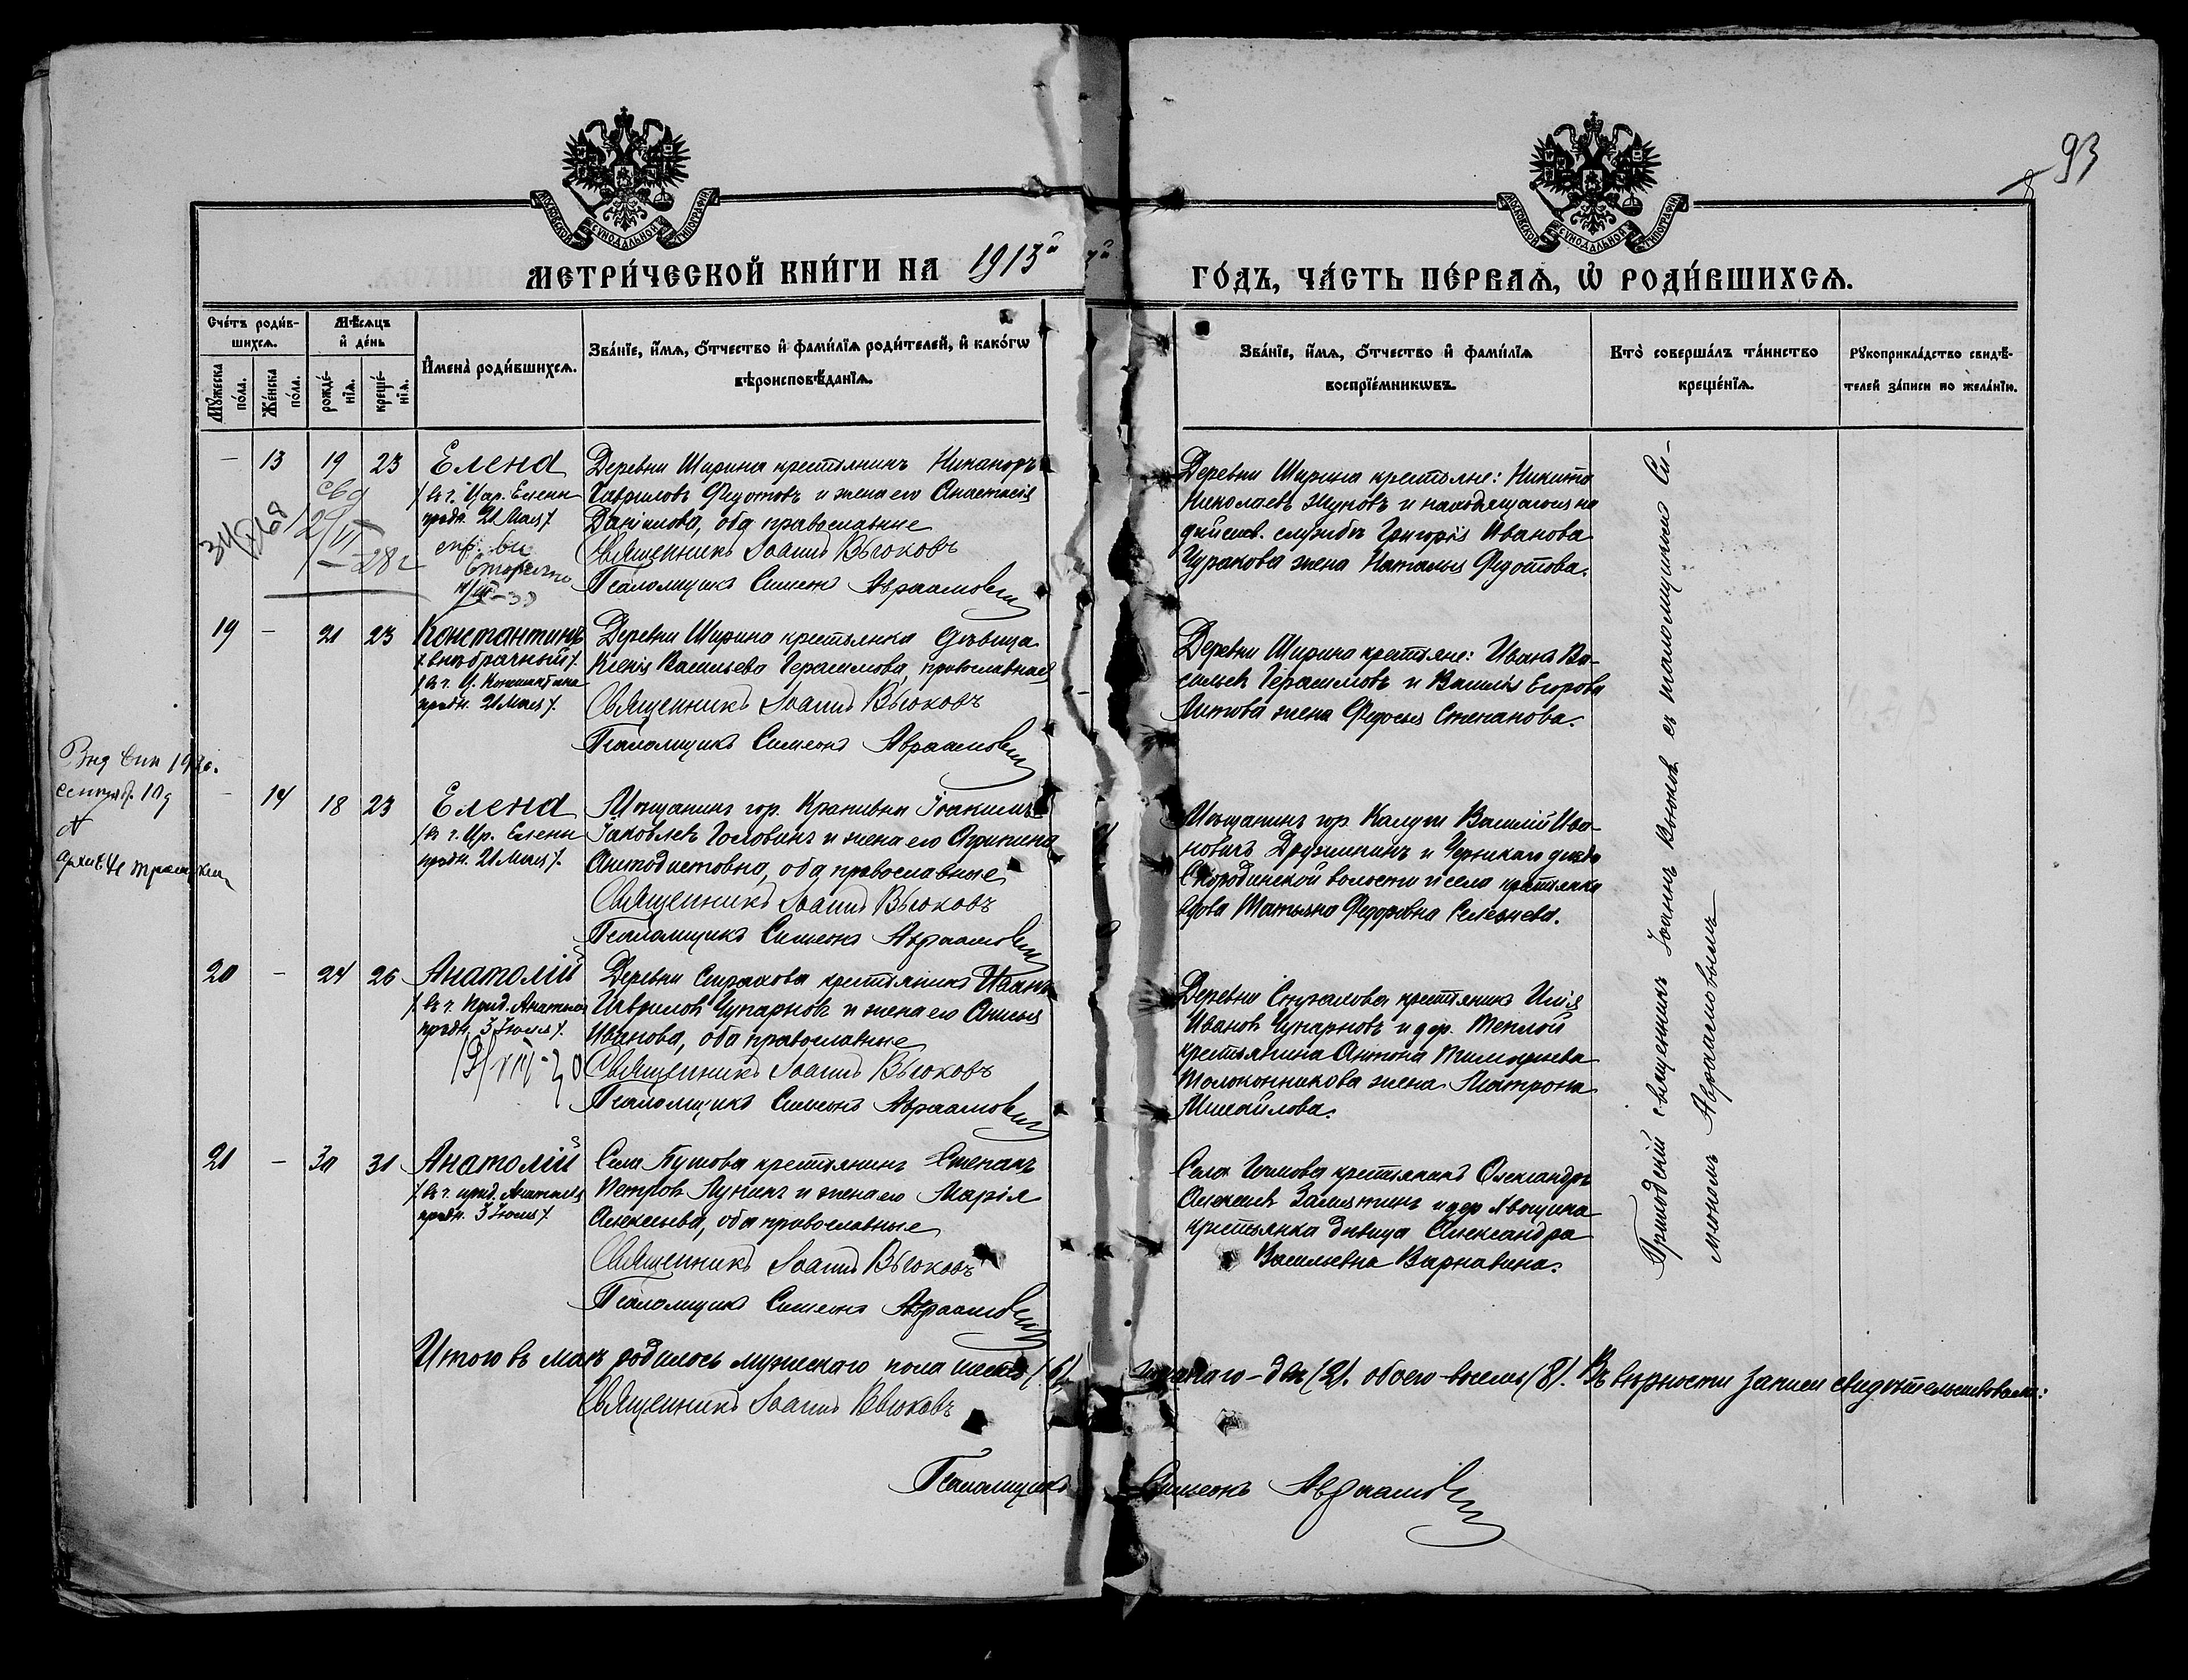 93
МОСКОВСКОЙ СѴНОДАЛЬНОЙ ТИПОГРАФІИ
МОСКОВСКОЙ СѴНОДАЛЬНОЙ ТИПОГРАФІИ
МЕТРИ́ЧЕСКОЙ КНИ́ГИ НА 1913й ГО́ДЪ, ЧА́СТЬ ПЕ́РВАѦ, Ѡ҆ РОДИ́ВШИХСѦ.
Сче́тъ роди́в-
шихсѧ.
Мꙋ́жеска по́ла.
Же́нска по́ла.
Мѣ́сѧцъ
и҆ де́нь
рожде́-
нїѧ.
креще́-
нїѧ.
И҆мена̀ роди́вшихсѧ.
Зва́нїе, и҆́мѧ, ѻ҆́тчество и҆ фами́лїѧ роди́телей, и҆ како́гѡ
вѣроисповѣ́данїѧ.
Зва́нїе, и҆́мѧ, ѻ҆́тчество и҆ фами́лїѧ
воспрїе́мникѡвъ.
Кто̀ соверша́лъ та́инство
креще́нїѧ.
Рꙋкоприкла́дство свидѣ́-
телей за́писи по жела́нїю.
– 13 19 23 Елена
/въ ч. Цар. Елены
праздн. 21 Мая/.
Деревни Ширина крестьянинъ Никаноръ
Гавриловъ Федотовъ и жена его Анастасія
Даніилова, оба православные
Священникъ Іоаннъ Вьюковъ
Псаломщикъ Симеонъ Авраамовъ
Деревни Ширина крестьяне: Никита
Николаевъ Жуковъ и находящагося на
дѣйств. службѣ Григорія Иванова
Чуракова жена Наталья Федотова.
19 – 21 23 Константинъ
/внѣбрачный/.
/въ ч. Ц. Константина
праздн. 21 Мая/.
Деревни Ширина крестьянка дѣвица
Ксенія Васильева Герасимова, православная
Священникъ Іоаннъ Вьюковъ
Псаломщикъ Симеонъ Авраамовъ
Деревни Ширина крестьяне: Иванъ Ва-
сильевъ Герасимовъ и Василія Егорова
Титова жена Федосья Степанова.
– 14 18 23 Елена
/въ ч. Цр. Елены
праздн. 21 Мая/.
Мѣщанинъ гор. Крапивны Іоакимъ
Іаковлевъ Головинъ и жена его Агрипина
оба православные
Священникъ Іоаннъ Вьюковъ
Псаломщикъ Симеонъ Авраамовъ
Мѣщанинъ гор. Калуги Василій Ива-
новичъ Дружининъ и Чернскаго уѣзда
Скородинской волости и села крестьянка
вдова Татьяна Федоровна Селезнева.
20 – 24 26 Анатолій
/въ ч. Прпд. Анатолія
праздн. 3 Іюля/.
Деревни Стрекалова крестьянинъ Иванъ
Гавриловъ Чупарновъ и жена его Анисья
Иванова, оба православные
Священникъ Іоаннъ Вьюковъ
Псаломщикъ Симеонъ Авраамовъ
Деревни Стрекалова крестьянинъ Илія
Ивановъ Чупарновъ и дер. Теплой
крестьянина Антона Тимофеева
Толоконникова жена Матрона
Михайлова.
21 – 30 31 Анатолій
/въ ч. прпд. Анатолія
праздн. 3 Іюля/.
Села крестьянинъ Степанъ
Петровъ Лунинъ и жена его Марія
Алексѣева, оба православные
Священникъ Іоаннъ Вьюковъ
Псаломщикъ Симеонъ Авраамовъ
Села крестьянинъ Александръ
Алексѣевъ Замятинъ и дер.
крестьянка дѣвица Александра
Васильевна Варнавина.
Приходскій священникъ Іоаннъ Вьюковъ съ псаломщикомъ Си-
меономъ Авраамовымъ
Итого въ маѣ родилось мужескаго пола шесть (6), женскаго – двѣ (2). обоего – восемь (8). Въ вѣрности записи свидѣтельствовали:
Священникъ Іоаннъ Вьюковъ
Псаломщикъ Симеонъ Авраамовъ